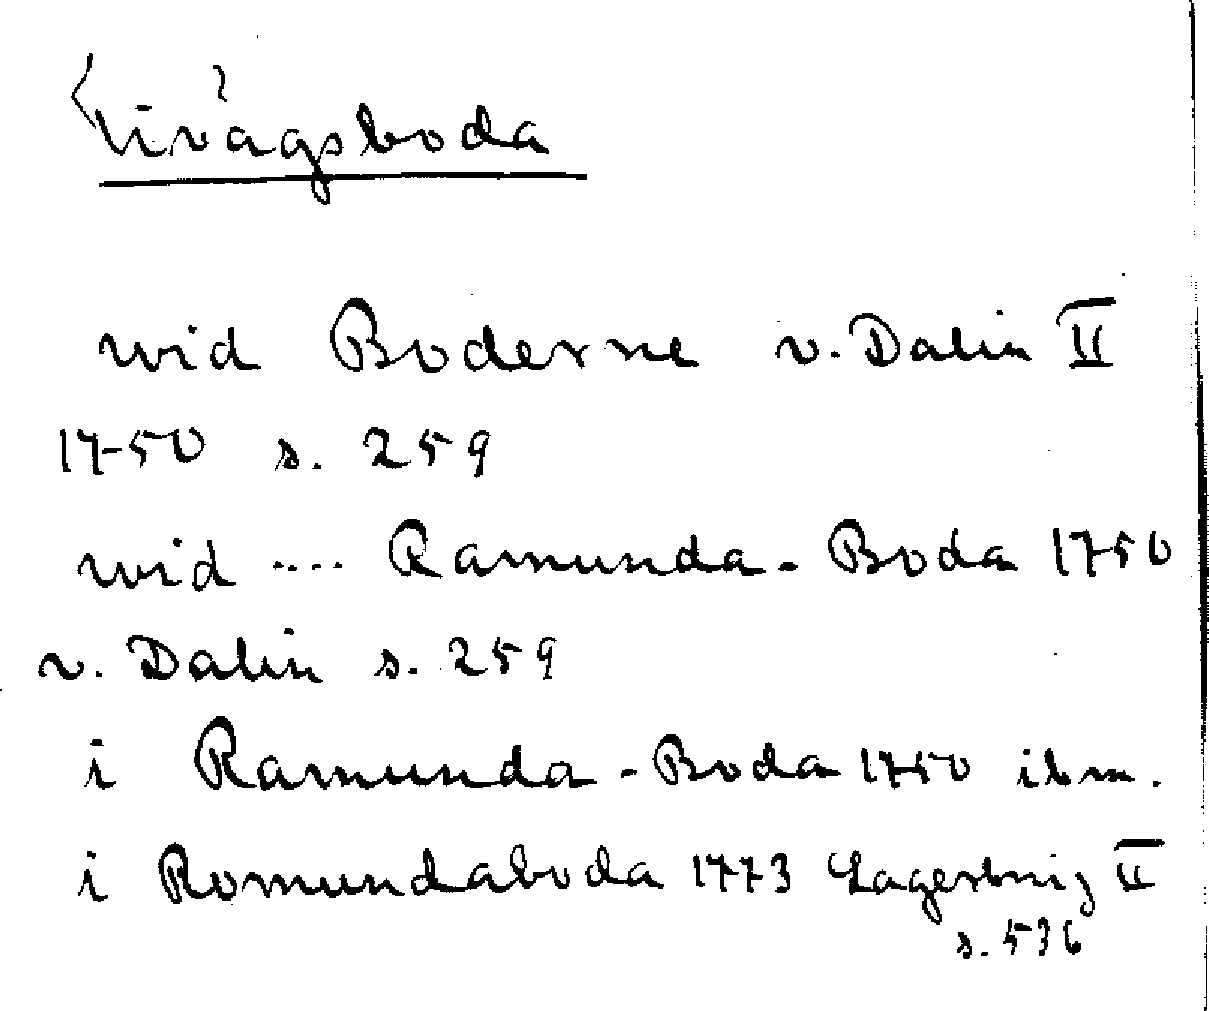 Tivägsboda
wid Boderne v. Dalin II
1750 s. 259
wid .... Ramunda-Boda 1750
v. Dalin s. 259
i Ramunda-Boda 1750 ibm.
i Romundaboda 1773 Lagerbring II
s. 536